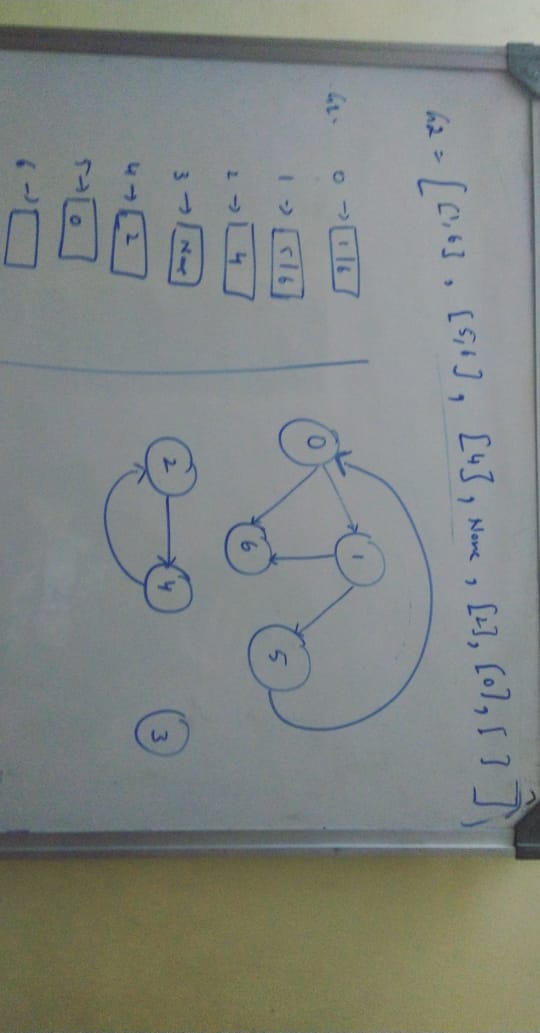 G2 = [ [1,6] , [5,6] , [4] , None , [2], [0], [ ] ]
G2-
0 → 1 | 6
1 → 5 | 6
2 → 4
3 → None
4 → 2
5 → 0
6 →
1
0
5
6
2
4
3